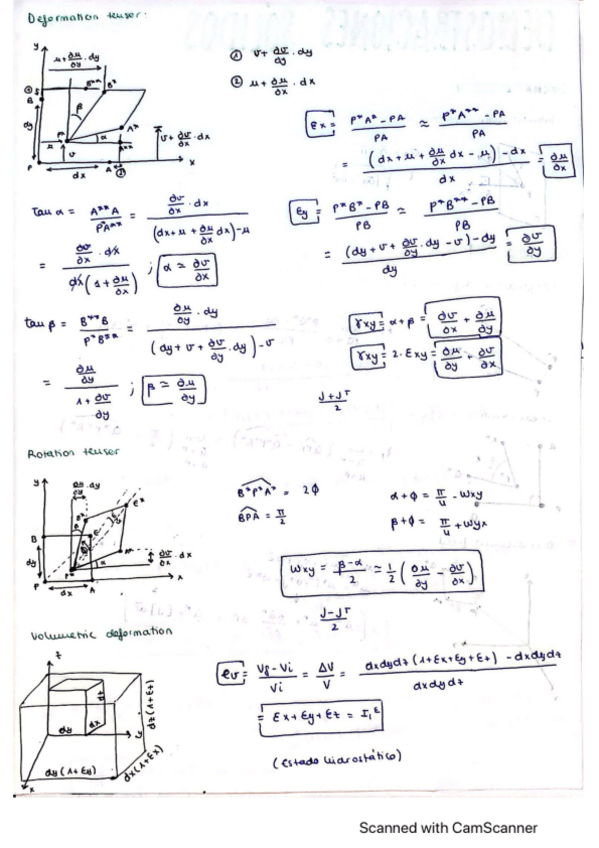 Deformation tensor:
① v + ∂v/∂y · dy
② u + ∂u/∂x · dx
εx = (P*A* - PA)/PA ≈ (P*A** - PA)/PA
= ((dx + u + ∂u/∂x dx - u) - dx)/dx = ∂u/∂x
tau α = A**A/P*A** = (∂v/∂x · dx)/((dx + u + ∂u/∂x dx) - u)
= (∂v/∂x · dx)/(dx(1 + ∂u/∂x)) ; α ≃ ∂v/∂x
εy = (P*B* - PB)/PB ≃ (P*B** - PB)/PB
= ((dy + v + ∂v/∂y · dy - v) - dy)/dy = ∂v/∂y
tau β = B**B/P*B** = (∂u/∂y · dy)/((dy + v + ∂v/∂y · dy) - v)
= (∂u/∂y)/(1 + ∂v/∂y) ; β ≃ ∂u/∂y
γxy = α + β = ∂v/∂x + ∂u/∂y
γxy = 2 · εxy = ∂u/∂y + ∂v/∂x
(J + Jᵀ)/2
Rotation tensor
B*P*A* = 2ϕ
BPA = π/2
α + ϕ = π/4 - ωxy
β + ϕ = π/4 + ωyx
ωxy = (β - α)/2 ≃ 1/2 (∂u/∂y - ∂v/∂x)
(J - Jᵀ)/2
Volumetric deformation
dz(1+εz)
dy(1+εy)
dx(1+εx)
ev = (Vf - Vi)/Vi = ΔV/V = (dxdydz(1+εx+εy+εz) - dxdydz)/dxdydz
= εx + εy + εz = I₁ᴱ
(estado hidrostático)
Scanned with CamScanner